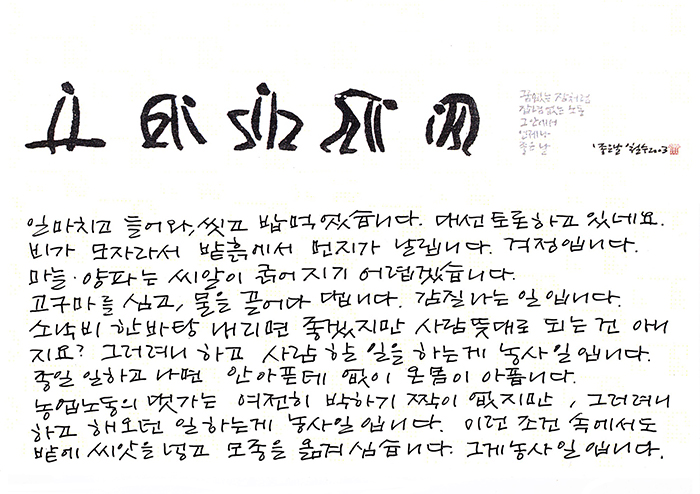 꿈없는 잠처럼
잡념 없는 노동
그 안에서
언제나
좋은 날
'좋은날 '철수2003
일마치고 들어와, 씻고 밥먹었습니다. 대선토론하고 있네요.
비가 모자라서 밭흙에서 먼지가 날립니다. 걱정입니다.
마늘·양파는 씨알이 굵어지기 어렵겠습니다.
고구마를 심고, 물을 끌어다 댑니다. 감질나는 일입니다.
소낙비 한바탕 내리면 좋겠지만 사람뜻대로 되는건 아니
지요? 그러려니 하고 사람 할 일을 하는게 농사일입니다.
종일 일하고 나면 안아픈데 없이 온몸이 아픕니다.
농업노동의 댓가는 여전히 박하기 짝이 없지만, 그러려니
하고 해오던 일 하는게 농사일입니다. 이런 조건 속에서도
밭에 씨앗을 넣고 모종을 옮겨 심습니다. 그게 농사일입니다.